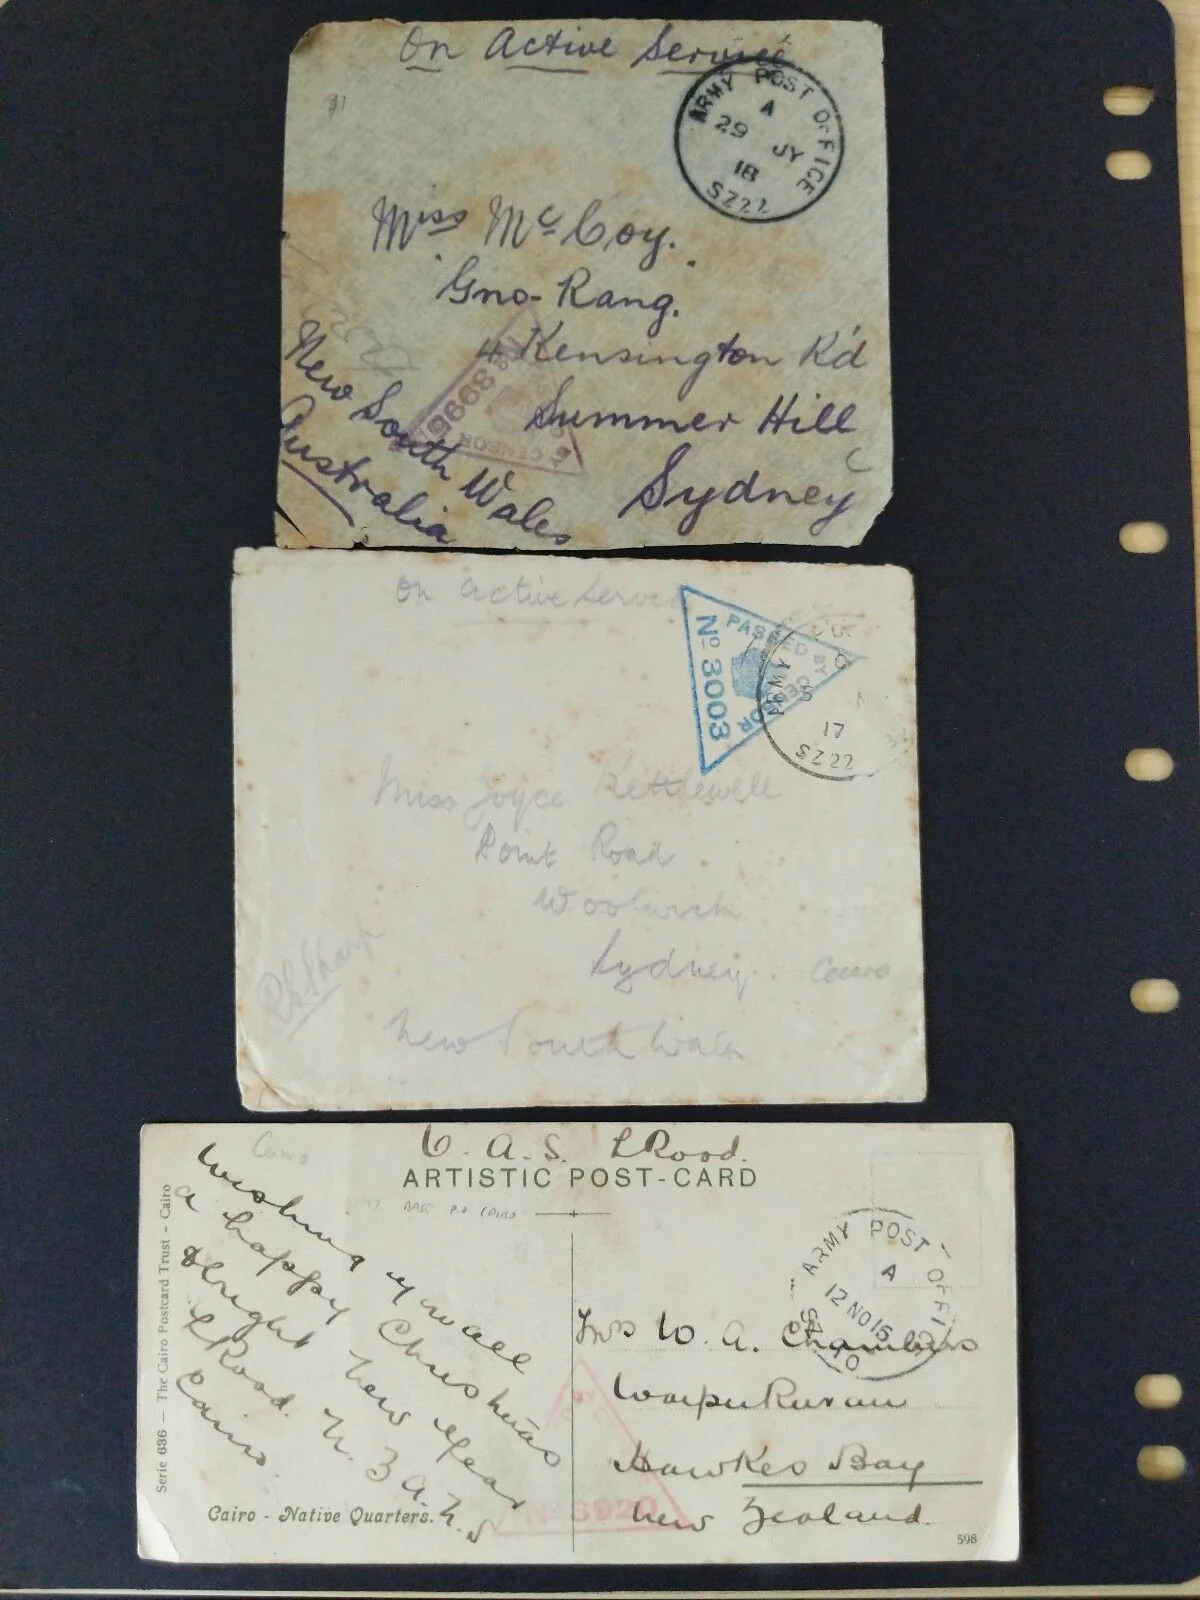 On Active Service
ARMY POST OFFICE
A
29 JY
18
SZ22
31
Miss McCoy.
Gno-Rang.
4 Kensington Rd
Summer Hill
Sydney
New South Wales
Australia
No 8995
BY CENSOR
On Active Service
PASSED BY CENSOR
No 3003
ARMY
17
SZ22
Miss Joyce Kettlewell
Point Road
Woolwich
Sydney.
Cairo
New South Wales
RLSharp
Cairo
O. A. S. LRood.
ARTISTIC POST-CARD
BASE P.O. CAIRO
Wishing you all
a happy Christmas
& bright New Year
LRood. N.Z.A.N.S
Cairo.
ARMY POST OFFI
A
12 NO 15
SZ 10
Mrs W. A. Chambers
Waipukurau
Hawkes Bay
New Zealand.
No 3920
Serie 636 — The Cairo Postcard Trust - Cairo
Cairo - Native Quarters.
598